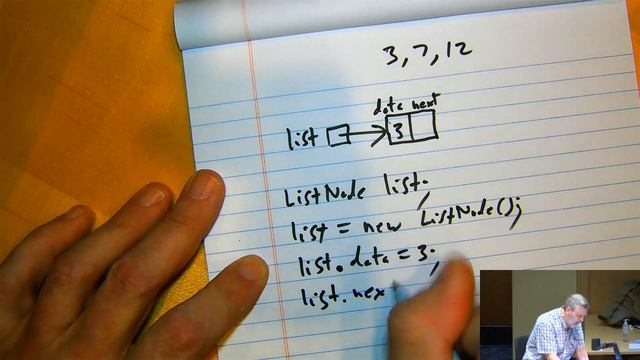 3, 7, 12
data next
list 3
ListNode list;
list = new ListNode();
list.data = 3;
list.nex